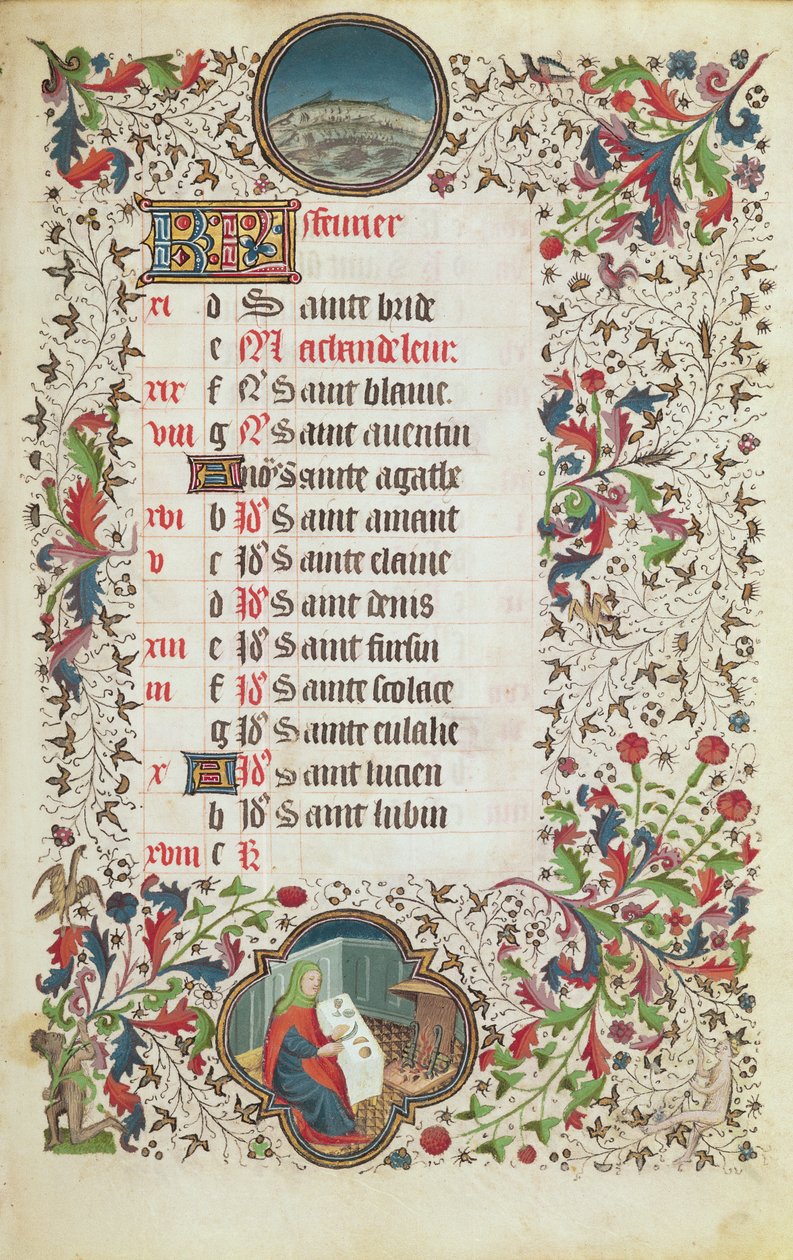 KL feurier
xi d Sainte bride
e N Machandeleur.
xix f N Saint blaiue.
viii g N Saint auentin
A noꝰ Sainte agathe
xvi b Id' Saint amant
v c Id' Sainte elaine
d Id' Saint denis
xiii e Id' Saint fursin
iii f Id' Sainte scolace
g Id' Sainte eulalie
x A Id' Saint lucien
b Id' Saint lubin
xviii c K